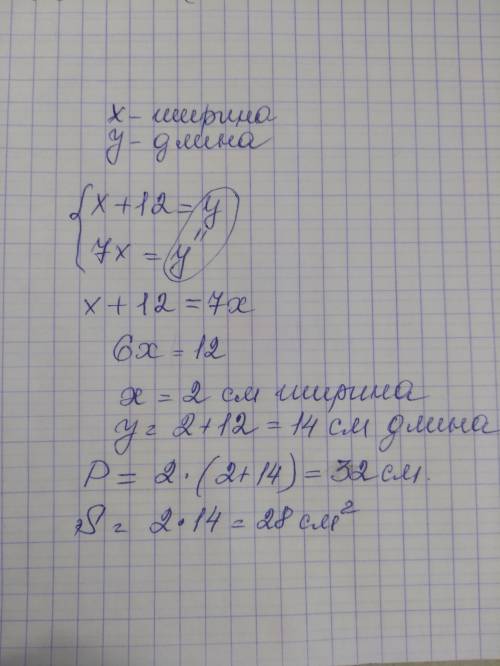 x - ширина
y - длина
x + 12 = y
7x = y
x + 12 = 7x
6x = 12
x = 2 см ширина
y = 2 + 12 = 14 см длина
P = 2 · (2 + 14) = 32 см.
S = 2 · 14 = 28 см²